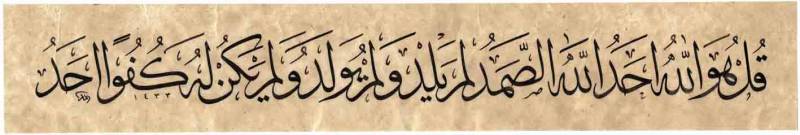 قُلْ هُوَ اللّٰهُ اَحَدٌ اللّٰهُ الصَّمَدُ لَمْ يَلِدْ وَلَمْ يُولَدْ وَلَمْ يَكُنْ لَهُ كُفُوًا اَحَدٌ
١٤٣٣